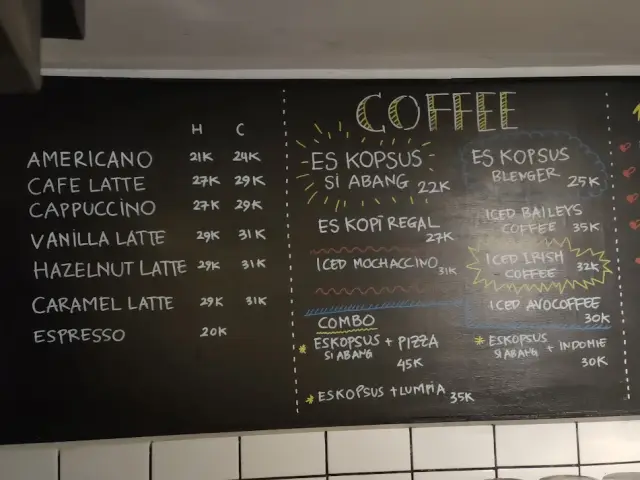 COFFEE
H C
AMERICANO 21K 24K
CAFE LATTE 27K 29K
CAPPUCCINO 27K 29K
VANILLA LATTE 29K 31K
HAZELNUT LATTE 29K 31K
CARAMEL LATTE 29K 31K
ESPRESSO 20K
ES KOPSUS
SI ABANG 22K
ES KOPI REGAL
27K
ICED MOCHACCINO 31K
ES KOPSUS
BLENGER 25K
ICED BAILEYS
COFFEE 35K
ICED IRISH
COFFEE 32K
ICED AVOCOFFEE
30K
COMBO
* ESKOPSUS + PIZZA
SI ABANG
45K
* ESKOPSUS + INDOMIE
SI ABANG
30K
* ESKOPSUS + LUMPIA 35K